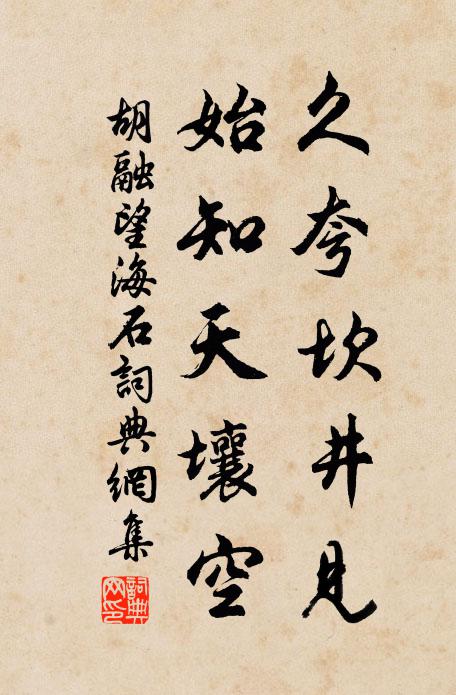 久夸坎井見
始知天壤空
胡融望海石詞典網集
詞典网印